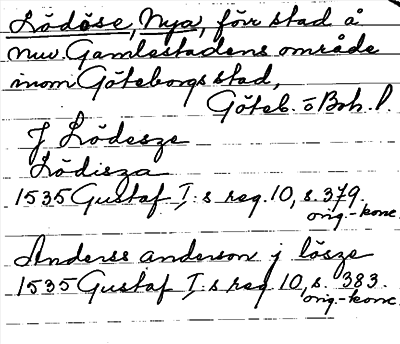 Lödöse, Nya, förr stad å
nuv. Gamlestadens område
inom Göteborgs stad,
Göteb. o Boh. l.
J Lödesze
Lödisza
1535 Gustaf I:s reg. 10, s. 379.
orig.-konc.
Anderss anderson j lösze
1535 Gustaf I:s reg. 10, s. 383.
orig.-konc.